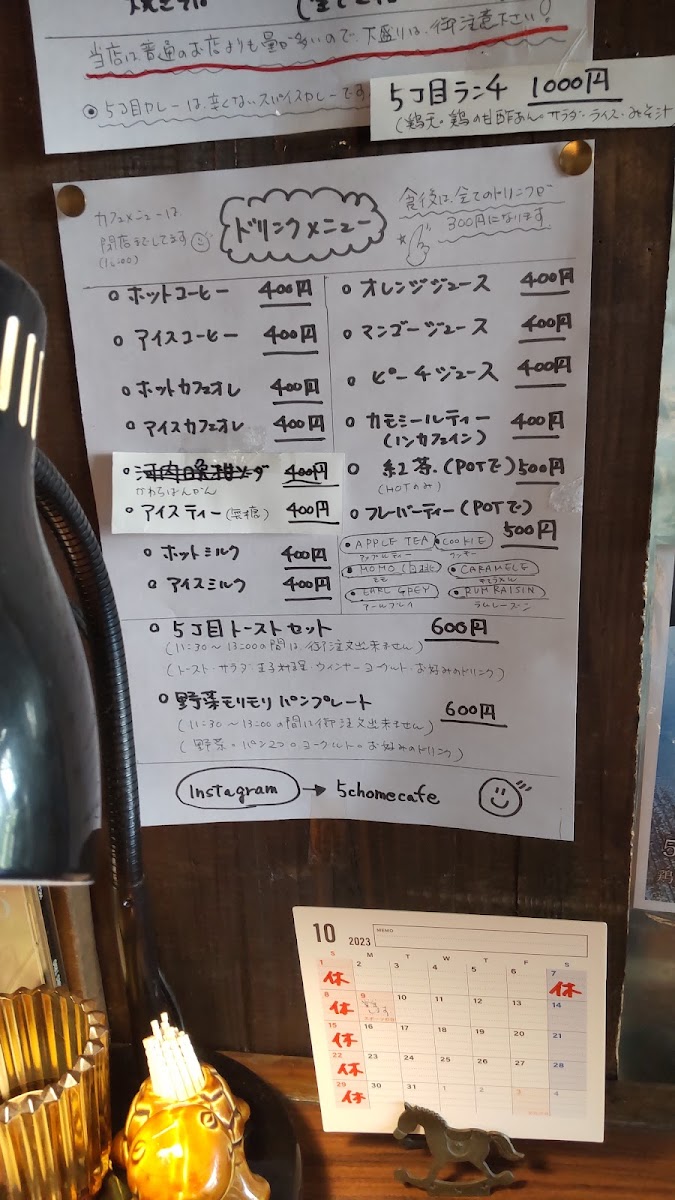 当店は普通のお店よりも量が多いので、大盛りは、御注意下さい!
◉ 5丁目カレーは、辛くないスパイスカレーです
5丁目ランチ 1000円
(鶏天。鶏の甘酢あん。サラダ・ライス・みそ汁
カフェメニューは
閉店までしてます
(16:00)
ドリンクメニュー
食後は、全てのドリンクが
300円になります
ホットコーヒー 400円
アイスコーヒー 400円
ホットカフェオレ 400円
アイスカフェオレ 400円
河内晩柑ソーダ 400円
かわちばんかん
アイスティー(無糖) 400円
ホットミルク 400円
アイスミルク 400円
オレンジジュース 400円
マンゴージュース 400円
ピーチジュース 400円
カモミールティー 400円
(ノンカフェイン)
紅茶.(POTで) 500円
(HOTのみ)
フレーバーティー(POTで)
500円
APPLE TEA
アップルティー
COOKIE
クッキー
MOMO(白桃)
モモ
CARAMELE
キャラメル
EARL GREY
アールグレイ
RUM RAISIN
ラムレーズン
5丁目トーストセット 600円
(11:30〜13:00の間は、御注文出来ません)
(トースト・サラダ・玉子料理・ウィンナー・ヨーグルト・お好みのドリンク)
野菜モリモリパンプレート 600円
(11:30〜13:00の間は御注文出来ません)
(野菜。パン2つ。ヨーグルト。お好みのドリンク)
Instagram → 5chomecafe
10 2023
MEMO
S M T W T F S
1 2 3 4 5 6 7
休 休
8 9 10 11 12 13 14
休
15 16 17 18 19 20 21
休
22 23 24 25 26 27 28
休
29 30 31 1 2 3 4
休